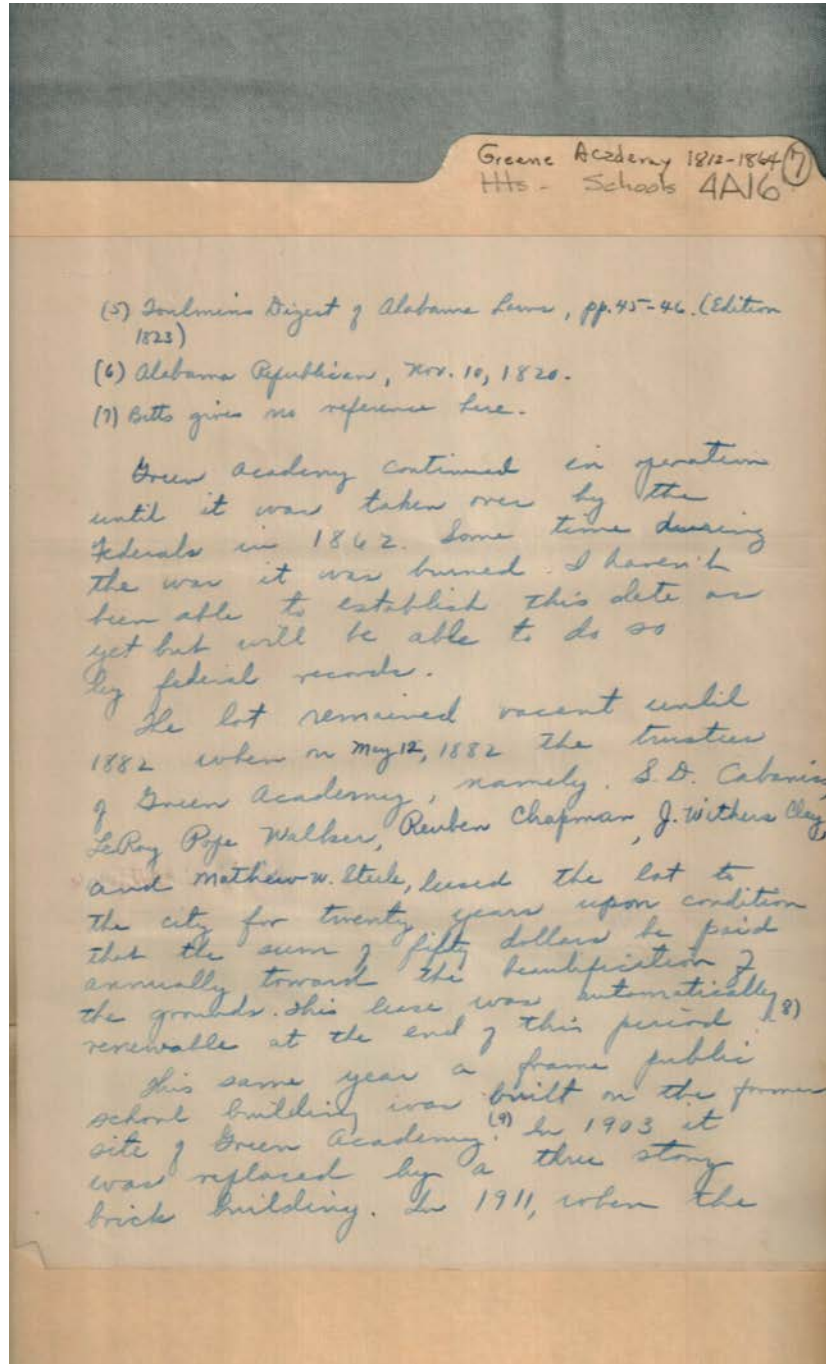 Greene Academy 1812-1864 7
Hts - Schools 4A16
(5) Toulmins Digest of Alabama Laws, pp. 45-46. (Edition
1823)
(6) Alabama Republican, Nov. 10, 1820.
(7) Betts gives no reference here.
Green Academy continued in operation
until it was taken over by the
Federals in 1862. Some time during
the war it was burned. I haven't
been able to establish this date as
yet but will be able to do so
by federal records.
The lot remained vacant until
1882 when on May 12, 1882 the trustees
of Green Academy, namely. S. D. Cabaniss,
LeRoy Pope Walker, Reuben Chapman, J. Withers Clay,
and Mathew W. Steele, leased the lot to
the city for twenty years upon condition
that the sum of fifty dollars be paid
annually toward the beautification of
the grounds. This lease was automatically
renewable at the end of this period. (8)
This same year a frame public
school building was built on the former
site of Green Academy. (9) In 1903 it
was replaced by a three story
brick building. In 1911, when the